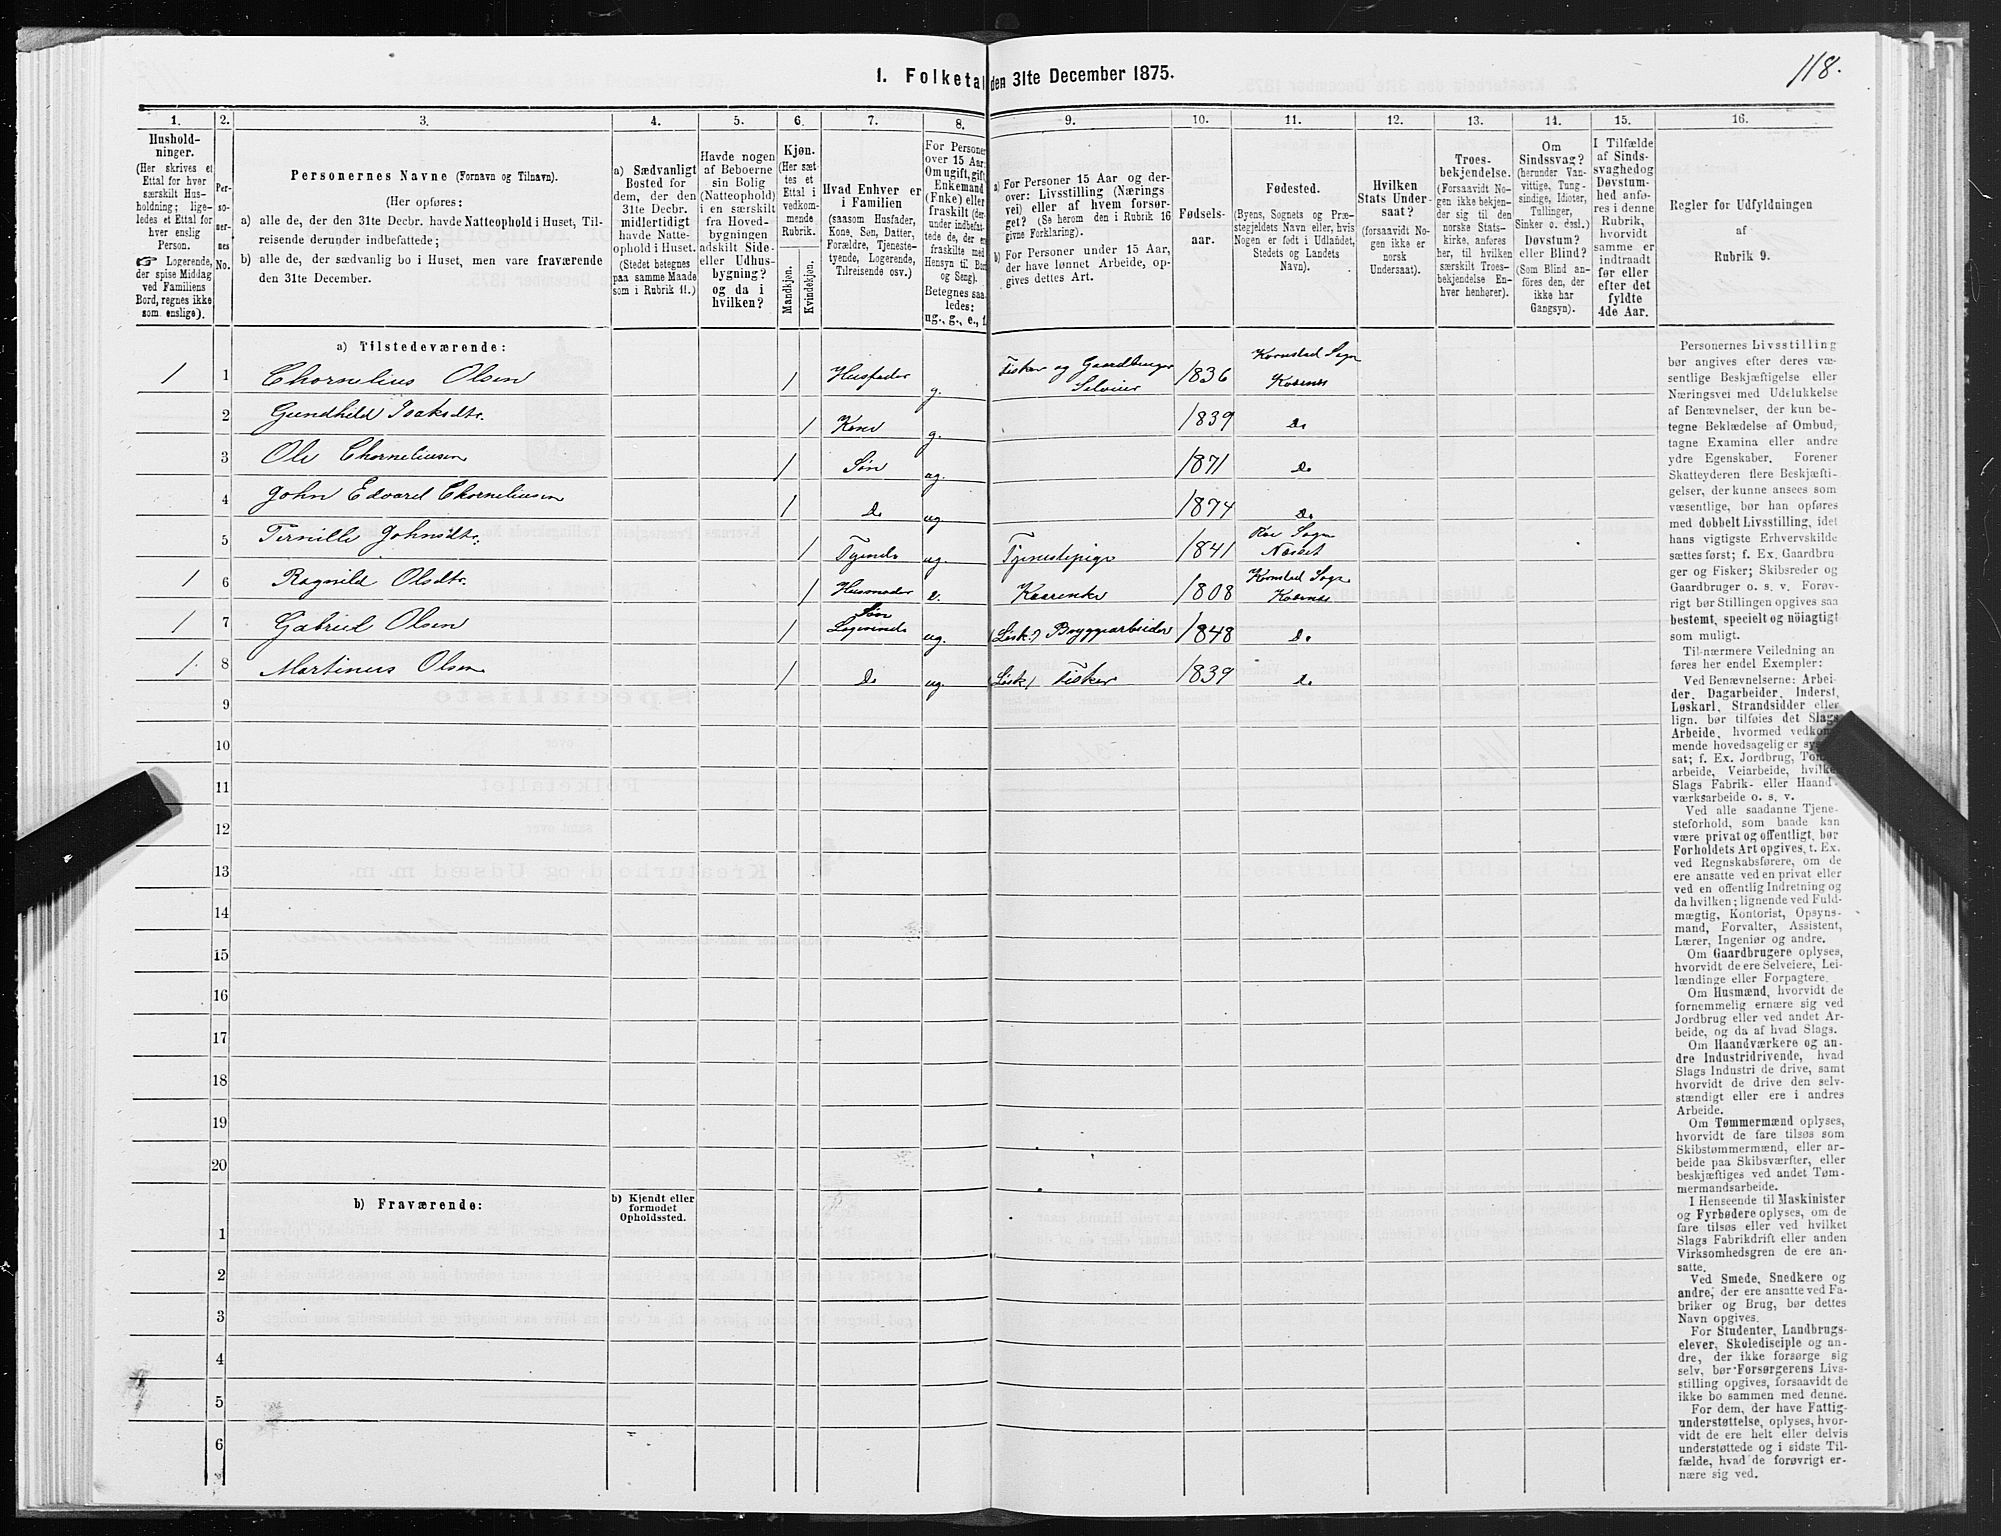 118.
1. Folketal den 31te December 1875.
1. 2. 3. 4. 5. 6. 7. 8. 9. 10. 11. 12. 13. 14. 15. 16.
Hushold-
ninger.
(Her skrives et
Ettal for hver
særskilt Hus-
holdning; lige-
ledes et Ettal for
hver enslig
Person.
☞ Logerende,
der spise Middag
ved Familiens
Bord, regnes ikke
som enslige).
Per-
so-
ner-
nes
No.
Personernes Navne (Fornavn og Tilnavn).
(Her opføres:
a) alle de, der den 31te Decbr. havde Natteophold i Huset, Til-
reisende derunder indbefattede;
b) alle de, der sædvanlig bo i Huset, men vare fraværende
den 31te December.
a) Sædvanligt
Bosted for
dem, der den
31te Decbr.
midlertidigt
havde Natte-
ophold i Huset.
(Stedet betegnes
paa samme Maade
som i Rubrik 11.)
Havde nogen
af Beboerne
sin Bolig
(Natteophold)
i en særskilt
fra Hoved-
bygningen
adskilt Side-
eller Udhus-
bygning?
og da i
hvilken?
Kjøn.
(Her sæt-
tes et
Ettal i
vedkom-
mende
Rubrik.
Mandkjøn.
Kvindekjøn.
Hvad Enhver er
i Familien
(saasom Husfader,
Kone, Søn, Datter,
Forældre, Tjeneste-
tyende, Logerende,
Tilreisende osv.)
For Personer
over 15 Aar:
Om ugift, gift,
Enkemand
(Enke) eller
fraskilt
Betegnes saa-
ledes:
ug., g., e., f.
a) For Personer 15 Aar og der-
over: Livsstilling (Nærings-
vei) eller af hvem forsør-
get? (Se herom den i Rubrik 16
givne Forklaring).
b) For Personer under 15 Aar,
der have lønnet Arbeide, op-
gives dettes Art.
Fødsels-
aar.
Fødested.
(Byens, Sognets og Præ-
stegjeldets Navn eller, hvis
Nogen er født i Udlandet,
Stedets og Landets
Navn).
Hvilken
Stats Under-
saat?
(forsaavidt No-
gen ikke er
norsk
Undersaat).
Troes-
bekjendelse.
(Forsaavidt No-
gen ikke bekjen-
der sig til den
norske Stats-
kirke, anføres
her, til hvilken
særskilt Troes-
bekjendelse En-
hver henhører).
Om
Sindssvag?
(herunder Van-
vittige, Tung-
sindige, Idioter,
Tullinger,
Sinker o. desl.)
Døvstum?
eller Blind?
(Som Blind an-
føres den, der
ikke har
Gangsyn).
I Tilfælde
af Sinds-
svaghed og
Døvstum-
hed anfø-
res i denne
Rubrik,
hvorvidt
samme er
indtraadt
før eller
efter det
fyldte
4de Aar.
Regler for Udfyldningen
af
Rubrik 9.
a) Tilstedeværende:
1 1 Chornelius Olsen 1 Husfader g. Fisker og Gaardbruger Selveier 1836 Kornstad Sogn Kvernes
2 Gundhild Isaksdtr. 1 Kone g. 1839 Do
3 Ole Chorneliusen 1 Søn ug. 1871 Do
4 John Edvard Chorneliusen 1 Do ug 1874 Do
5 Pernille Johnsdtr. 1 Tyende ug. Tjenestepige 1841 Røe Sogn Næsset
1 6 Ragnild Olsdtr. 1 Husmoder e. Kaarenke 1808 Kornstad Sogn Kvernes
1 7 Gabriel Olsen 1 Søn Logerende ug. (Løsk.) Bryggearbeider 1848 Do
1. 8 Martinus Olsen 1 Do ug (Løsk) Fisker 1839 Do
9
10
11
12
13
14
15
16
17
18
19
20
b) Fraværende:
b) Kjendt eller
formodet
Opholdssted.
1
2
3
4
5
6
Personernes Livsstilling
bør angives efter deres væ-
sentlige Beskjæftigelse eller
Næringsvei med Udelukkelse
af Benævnelser, der kun be-
tegne Beklædelse af Ombud,
tagne Examina eller andre
ydre Egenskaber. Forener
Skatteyderen flere Beskjæfti-
gelser, der kunne ansees som
væsentlige, bør han opføres
med dobbelt Livsstilling, idet
hans vigtigste Erhvervskilde
sættes først; f. Ex. Gaardbru-
ger og Fisker; Skibsreder og
Gaardbruger o. s. v. Forøv-
rigt bør Stillingen opgives saa
bestemt, specielt og nöiagtigt
som muligt.
Til nærmere Veiledning an-
føres her endel Exempler:
Ved Benævnelserne: Arbei-
der, Dagarbeider, Inderst,
Løskarl, Strandsidder eller
lign. bør tilføies det Slags
Arbeide, hvormed vedkom-
mende hovedsagelig er syssel-
sat; f. Ex. Jordbrug, Tomte-
arbeide, Veiarbeide, hvilket
Slags Fabrik- eller Haand-
værksarbeide o. s. v.
Ved alle saadanne Tjene-
steforhold, som baade kan
være privat og offentligt, bør
Forholdets Art opgives, t. Ex.
ved Regnskabsførere, om de
ere ansatte ved en privat eller
ved en offentlig Indretning og
da hvilken; lignende ved Fuld-
mægtig, Kontorist, Opsyns-
mand, Forvalter, Assistent,
Lærer, Ingeniør og andre.
Om Gaardbrugere oplyses,
hvorvidt de ere Selveiere, Lei-
lændinge eller Forpagtere.
Om Husmænd, hvorvidt de
fornemmelig ernære sig ved
Jordbrug eller ved andet Ar-
beide, og da af hvad Slags.
Om Haandværkere og an-
dre Industridrivende, hvad
Slags Industri de drive, samt
hvorvidt de drive den selv-
stændigt eller ere i andres
Arbeide.
Om Tømmermænd oplyses,
hvorvidt de fare tilsøs som
Skibstømmermænd, eller ar-
beide paa Skibsværfter, eller
beskjæftiges ved andet Tøm-
mermandsarbeide.
I Henseende til Maskinister
og Fyrbødere oplyses, om de
fare tilsøs eller ved hvilket
Slags Fabrikdrift eller anden
Virksomhedsgren de ere an-
satte.
Ved Smede, Snedkere og
andre, der ere ansatte ved Fa-
briker og Brug, bør dettes
Navn opgives.
For Studenter, Landbrugs-
elever, Skoledisciple og an-
dre, der ikke forsørge sig
selv, bør Forsørgerens Livs-
stilling opgives, forsaavidt de
ikke bo sammen med denne.
For dem, der have Fattig-
understøttelse, oplyses, hvor-
vidt de ere helt eller delvis
understøttede og i sidste Til-
fælde, hvad de forøvrigt er-
nære sig ved.